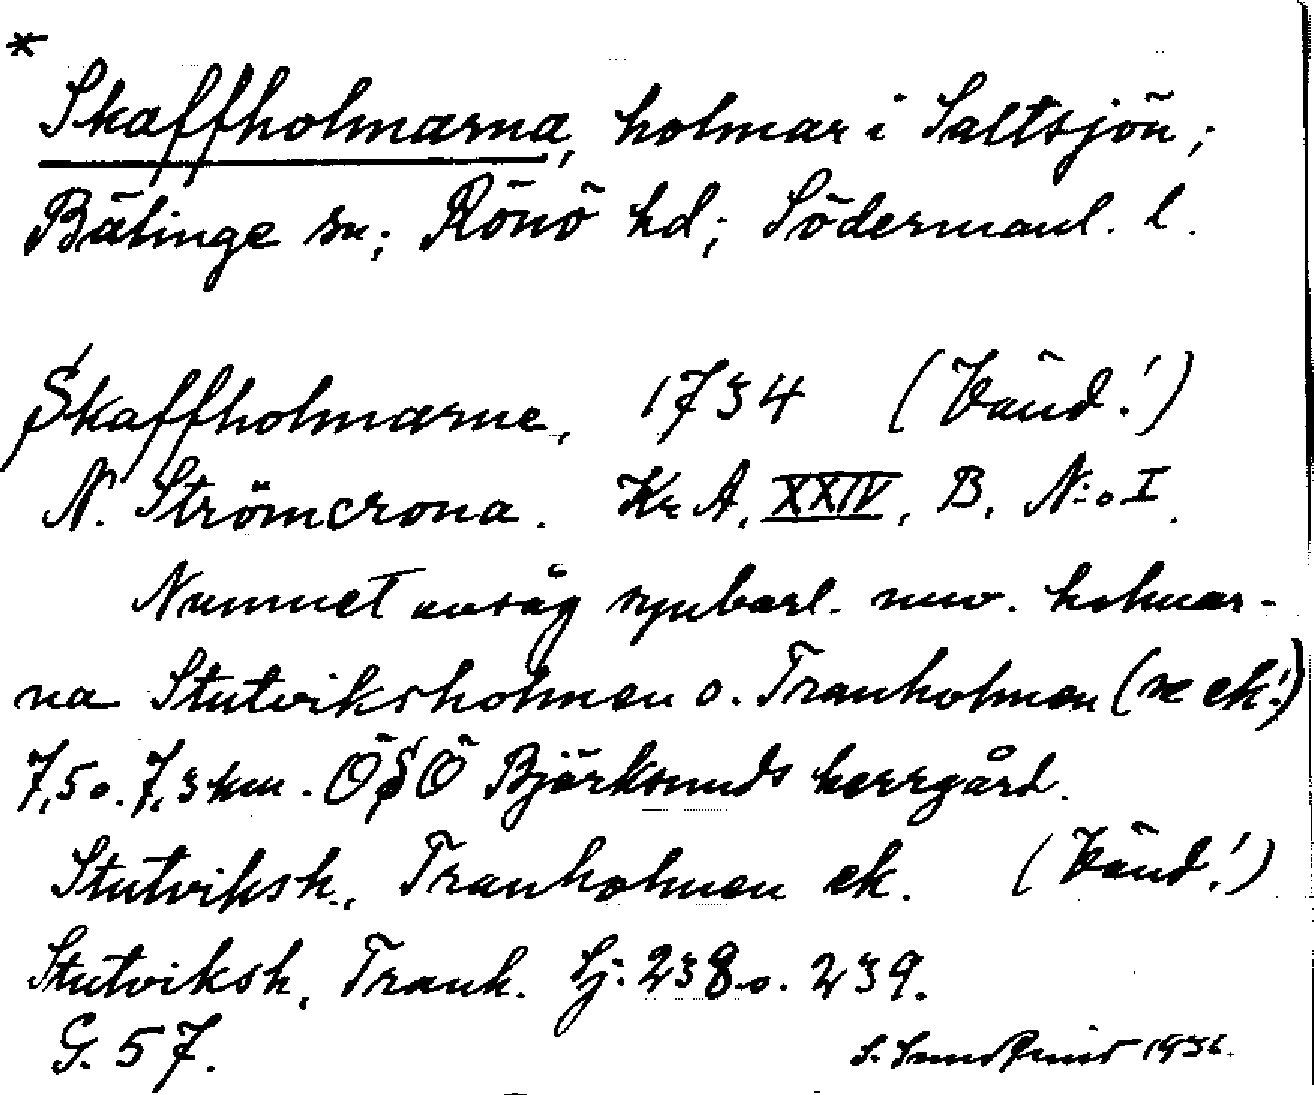 *
Skaffholmarna, holmar i Saltsjön;
Bälinge sn; Rönö hd; Södermanl. l.
Skaffholmarne, 1734 (Vänd!)
N. Strömcrona. Kr A, XXIV, B, N:o I.
Namnet avsåg synbarl. nuv. holmar-
na Stutviksholmen o. Tranholmen (se ek!)
7,5 o. 7,3 km. ÖSÖ Björksunds herrgård.
Stutviksh., Tranholmen ek. (Vänd!)
Stutviksh, Tranh. Sj. 238 o. 239.
G. 57.
S. 193